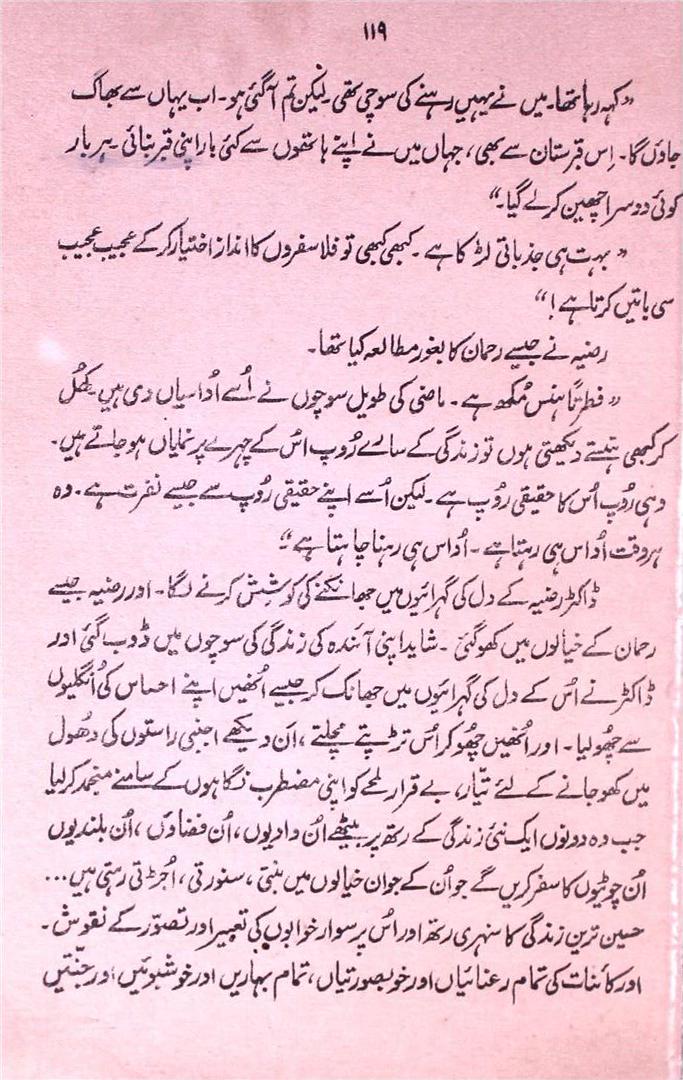 ۱۱۹
”کہہ رہا تھا۔ میں نے یہیں رہنے کی سوچی تھی۔ لیکن تم آ گئی ہو۔ اب یہاں سے بھاگ
جاؤں گا۔ اِس قبرستان سے بھی، جہاں میں نے اپنے ہاتھوں سے کئی بار اپنی قبر بنائی۔ ہر بار
کوئی دوسرا چھین کر لے گیا۔“
”بہت ہی جذباتی لڑکا ہے۔ کبھی کبھی تو فلاسفروں کا انداز اختیار کر کے عجیب عجیب
سی باتیں کرتا ہے!“
رضیہ نے جیسے رحمان کا بغور مطالعہ کیا تھا۔
”فطرتاً ہنس مُکھ ہے۔ ماضی کی طویل سوچوں نے اُسے اُداسیاں دی ہیں۔ کھُل
کر کبھی ہنستے دیکھتی ہوں تو زندگی کے سارے رُوپ اس کے چہرے پر نمایاں ہو جاتے ہیں۔
وہی رُوپ اُس کا حقیقی رُوپ ہے۔ لیکن اُسے اپنے حقیقی رُوپ سے جیسے نفرت ہے۔ وہ
ہر وقت اُداس ہی رہتا ہے۔ اُداس ہی رہنا چاہتا ہے“۔
ڈاکٹر رضیہ کے دل کی گہرائیوں میں جھانکنے کی کوشش کرنے لگا۔ اور رضیہ جیسے
رحمان کے خیالوں میں کھو گئی۔ شاید اپنی آئندہ کی زندگی کی سوچوں میں ڈوب گئی اور
ڈاکٹر نے اُس کے دل کی گہرائیوں میں جھانک کر جیسے اُنھیں اپنے احساس کی اُنگلیوں
سے چھُو لیا۔ اور اُنھیں چھُو کر اُس تڑپتے مچلتے، ان دیکھے اجنبی راستوں کی دھُول
میں کھو جانے کے لئے تیّار، بے قرار لمحے کو اپنی مضطرب نگاہوں کے سامنے منجمد کر لیا
جب وہ دونوں ایک نئی زندگی کے رتھ پر بیٹھے اُن وادیوں، اُن فضاؤں، اُن بلندیوں
اُن چوٹیوں کا سفر کریں گے جو اُن کے جوان خیالوں میں بنتی، سنورتی، اُجڑتی رہتی ہیں...
حسین ترین زندگی کا سنہری رتھ اور اُس پر سوار خوابوں کی تعبیر اور تصوّر کے نقوش۔
اور کائنات کی تمام رعنائیاں اور خوبصورتیاں، تمام بہاریں اور خوشبوئیں اور جنّتیں